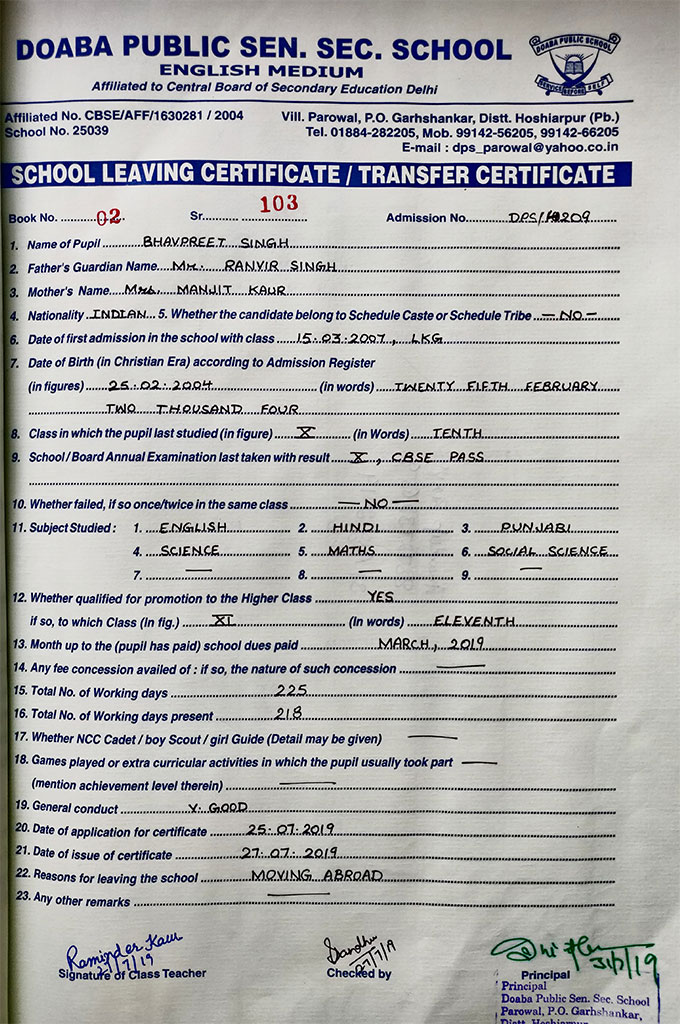 DOABA PUBLIC SEN. SEC. SCHOOL
ENGLISH MEDIUM
Affiliated to Central Board of Secondary Education Delhi
DOABA PUBLIC SCHOOL
SERVICE BEFORE SELF
Affiliated No. CBSE/AFF/1630281 / 2004
School No. 25039
Vill. Parowal, P.O. Garhshankar, Distt. Hoshiarpur (Pb.)
Tel. 01884-282205, Mob. 99142-56205, 99142-66205
E-mail : dps_parowal@yahoo.co.in
SCHOOL LEAVING CERTIFICATE / TRANSFER CERTIFICATE
Book No. 02 Sr. 103 Admission No. DPS/
1. Name of Pupil BHAVPREET SINGH
2. Father's Guardian Name Mr. RANVIR SINGH
3. Mother's Name Mrs. MANJIT KAUR
4. Nationality INDIAN 5. Whether the candidate belong to Schedule Caste or Schedule Tribe — NO —
6. Date of first admission in the school with class 15.03.2007, LKG
7. Date of Birth (in Christian Era) according to Admission Register
(in figures) 25.02.2004 (in words) TWENTY FIFTH FEBRUARY
TWO THOUSAND FOUR
8. Class in which the pupil last studied (in figure) X (in Words) TENTH
9. School / Board Annual Examination last taken with result X, CBSE PASS
10. Whether failed, if so once/twice in the same class — NO —
11. Subject Studied : 1. ENGLISH 2. HINDI 3. PUNJABI
4. SCIENCE 5. MATHS 6. SOCIAL SCIENCE
7. — 8. — 9. —
12. Whether qualified for promotion to the Higher Class YES
if so, to which Class (In fig.) XI (In words) ELEVENTH
13. Month up to the (pupil has paid) school dues paid MARCH, 2019
14. Any fee concession availed of : if so, the nature of such concession —
15. Total No. of Working days 225
16. Total No. of Working days present 218
17. Whether NCC Cadet / boy Scout / girl Guide (Detail may be given) —
18. Games played or extra curricular activities in which the pupil usually took part —
(mention achievement level therein) —
19. General conduct V. GOOD
20. Date of application for certificate 25.07.2019
21. Date of issue of certificate 27.07.2019
22. Reasons for leaving the school MOVING ABROAD
23. Any other remarks —
Raminder Kaur
27/7/19
Signature of Class Teacher
Sandhu
27/7/19
Checked by
Principal
Principal
Doaba Public Sen. Sec. School
Parowal, P.O. Garhshankar,
Distt. Hoshiarpur